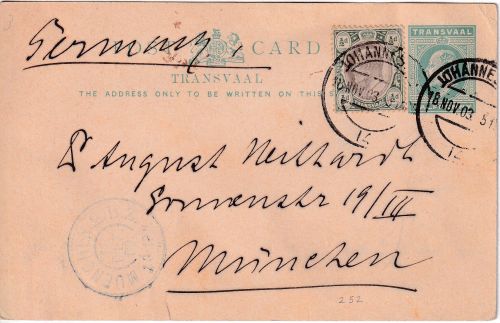 Germany.
CARD
TRANSVAAL
THE ADDRESS ONLY TO BE WRITTEN ON THIS
TRANSVAAL
JOHANNES
18 NOV. 03
JOHANNES
18 NOV. 03
August Neithardt
19/III
München
252